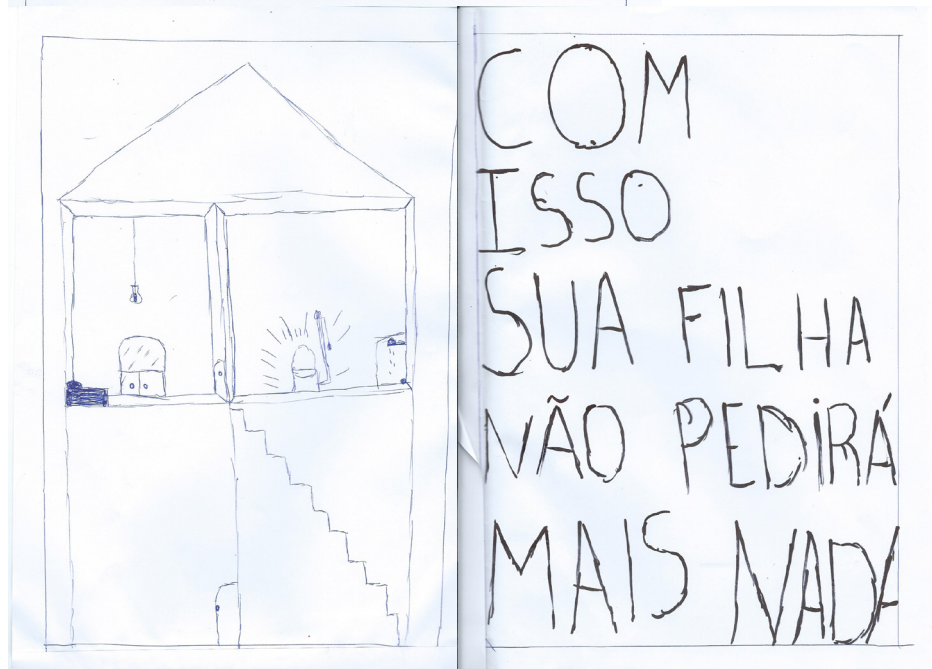 COM
ISSO
SUA FILHA
NÃO PEDIRÁ
MAIS NADA